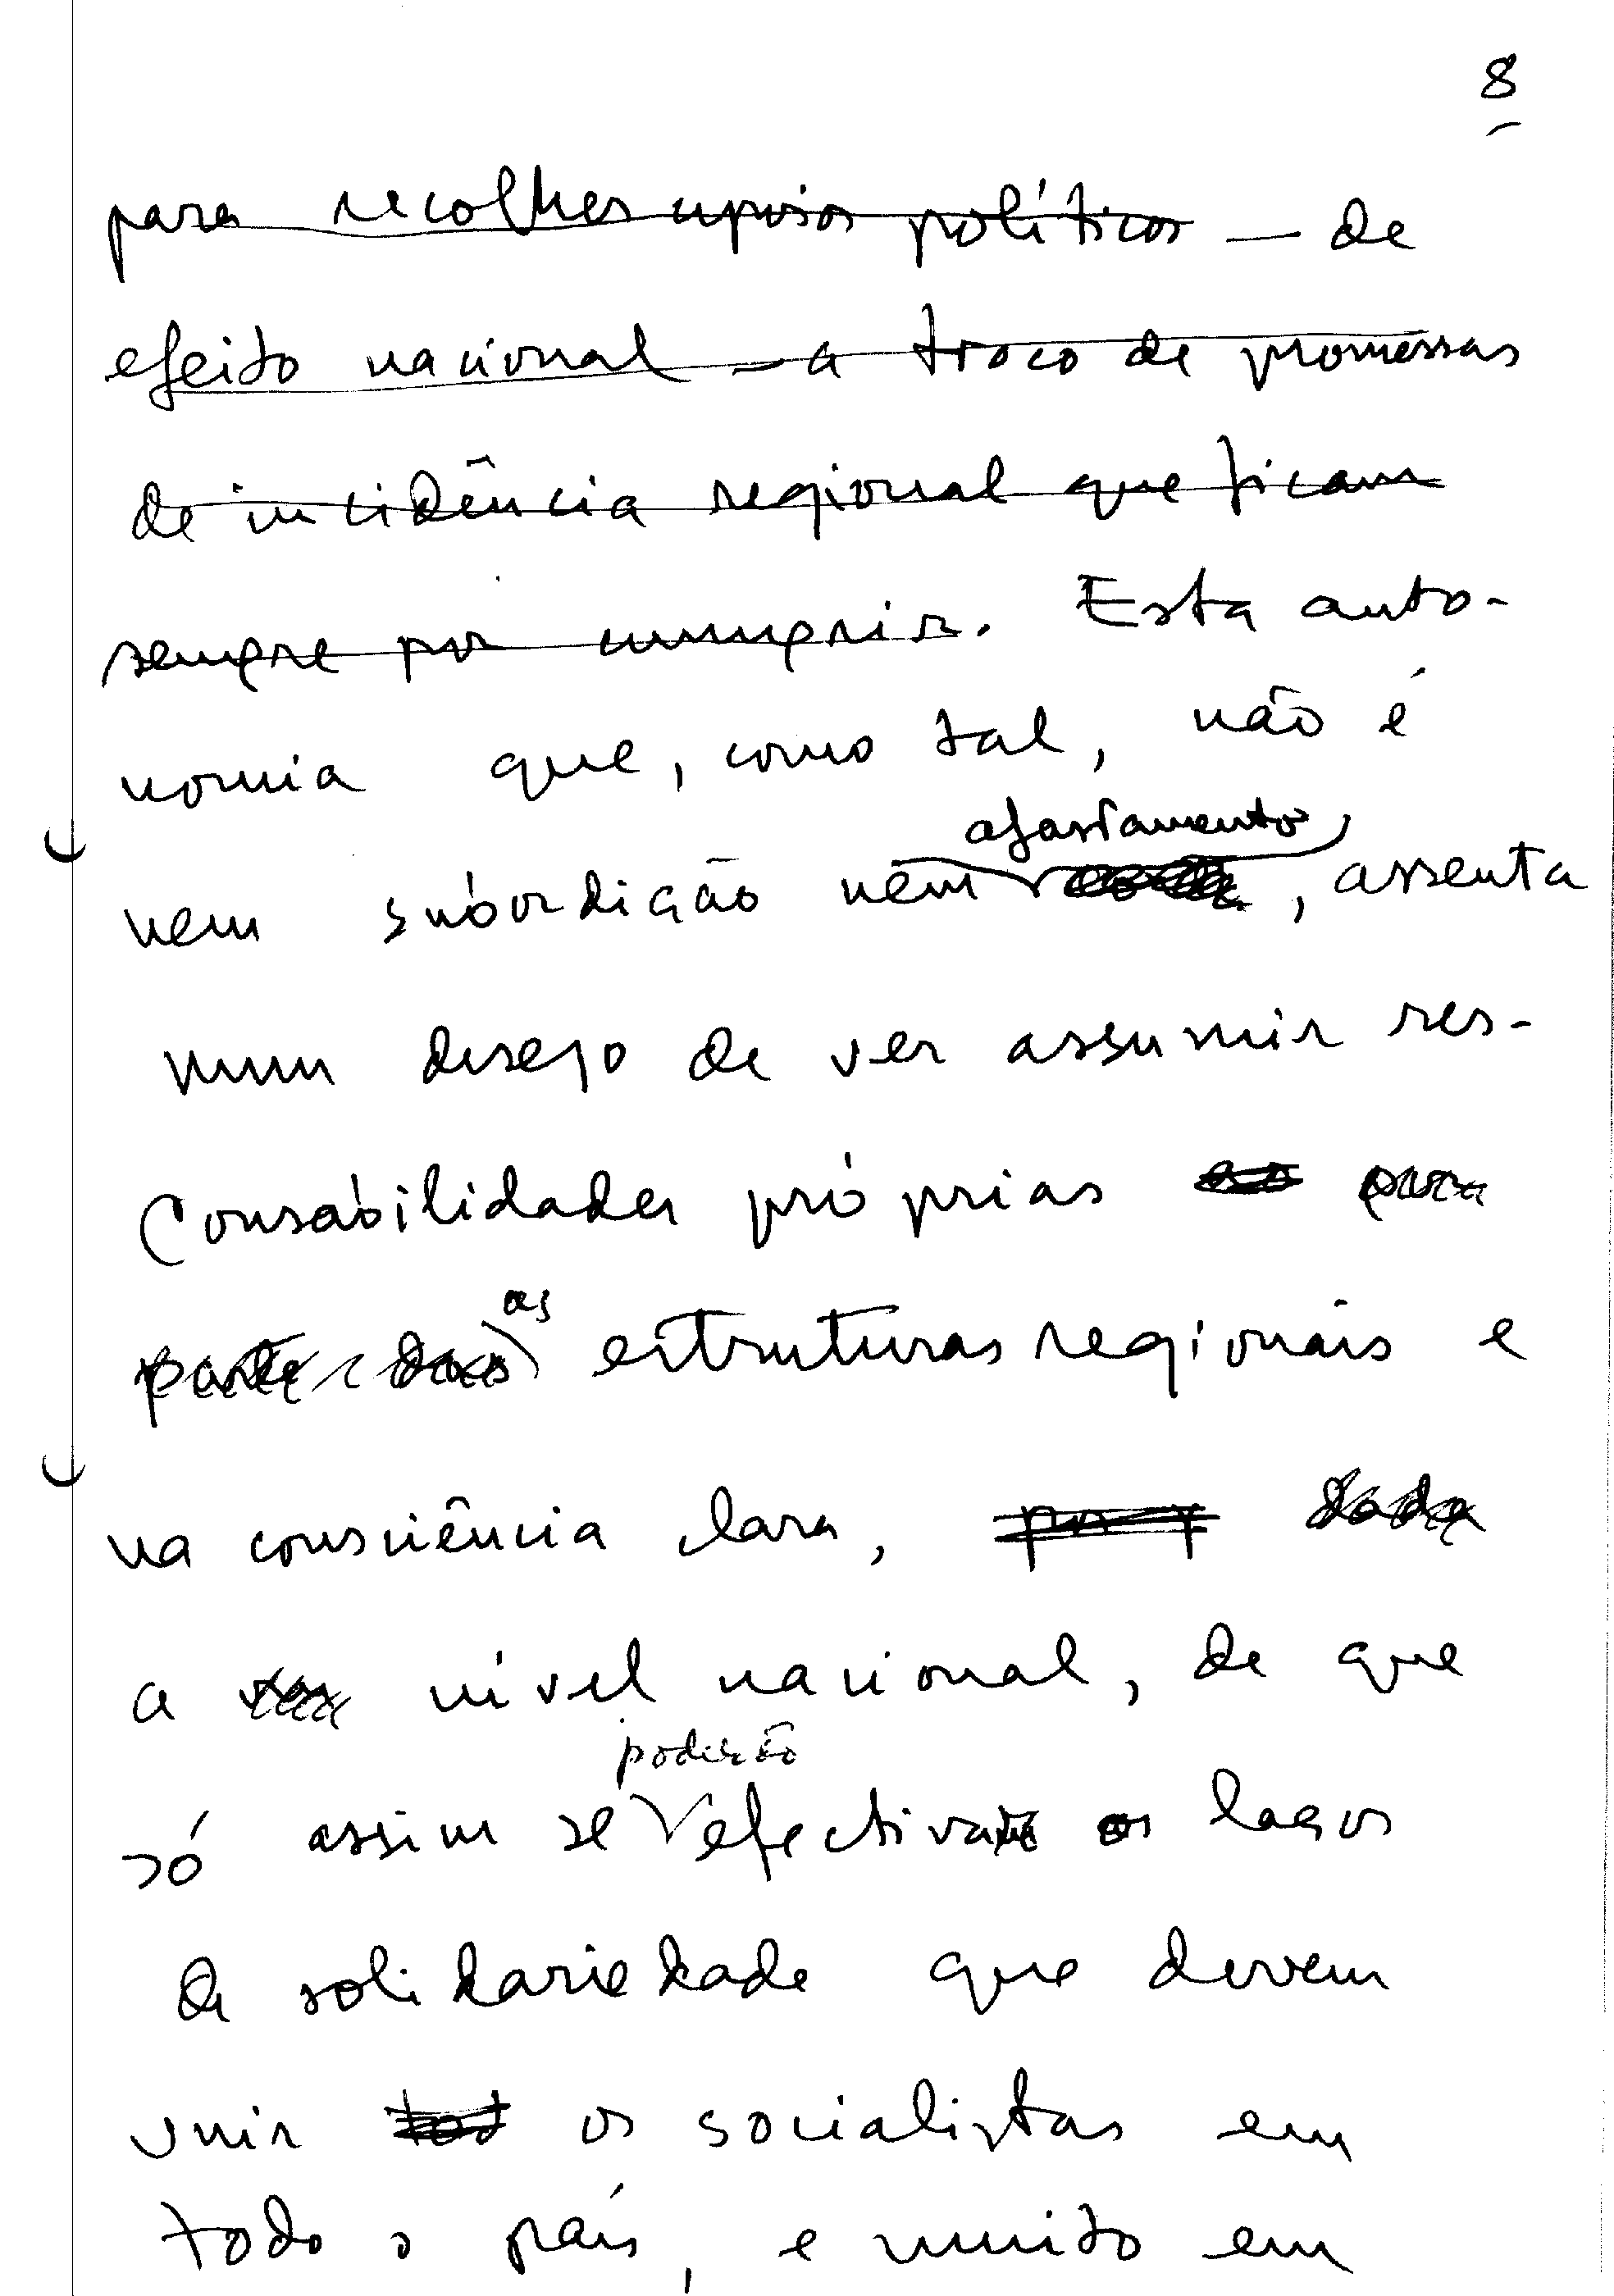 8
para recolher apoios políticos — de
efeito nacional — a troco de promessas
de incidência regional que ficam
sempre por cumprir. Esta auto-
nomia que, como tal, não é
afastamento
nem subordição nem , assenta
num desejo de ver assumir res-
ponsabilidades próprias ao para
as
parte das estruturas regionais e
na consciência clara, por
a nível nacional, de que
poderão
só assim se efectivar os laços
de solidariedade que devem
unir tod os socialistas em
todo o país, e muito em